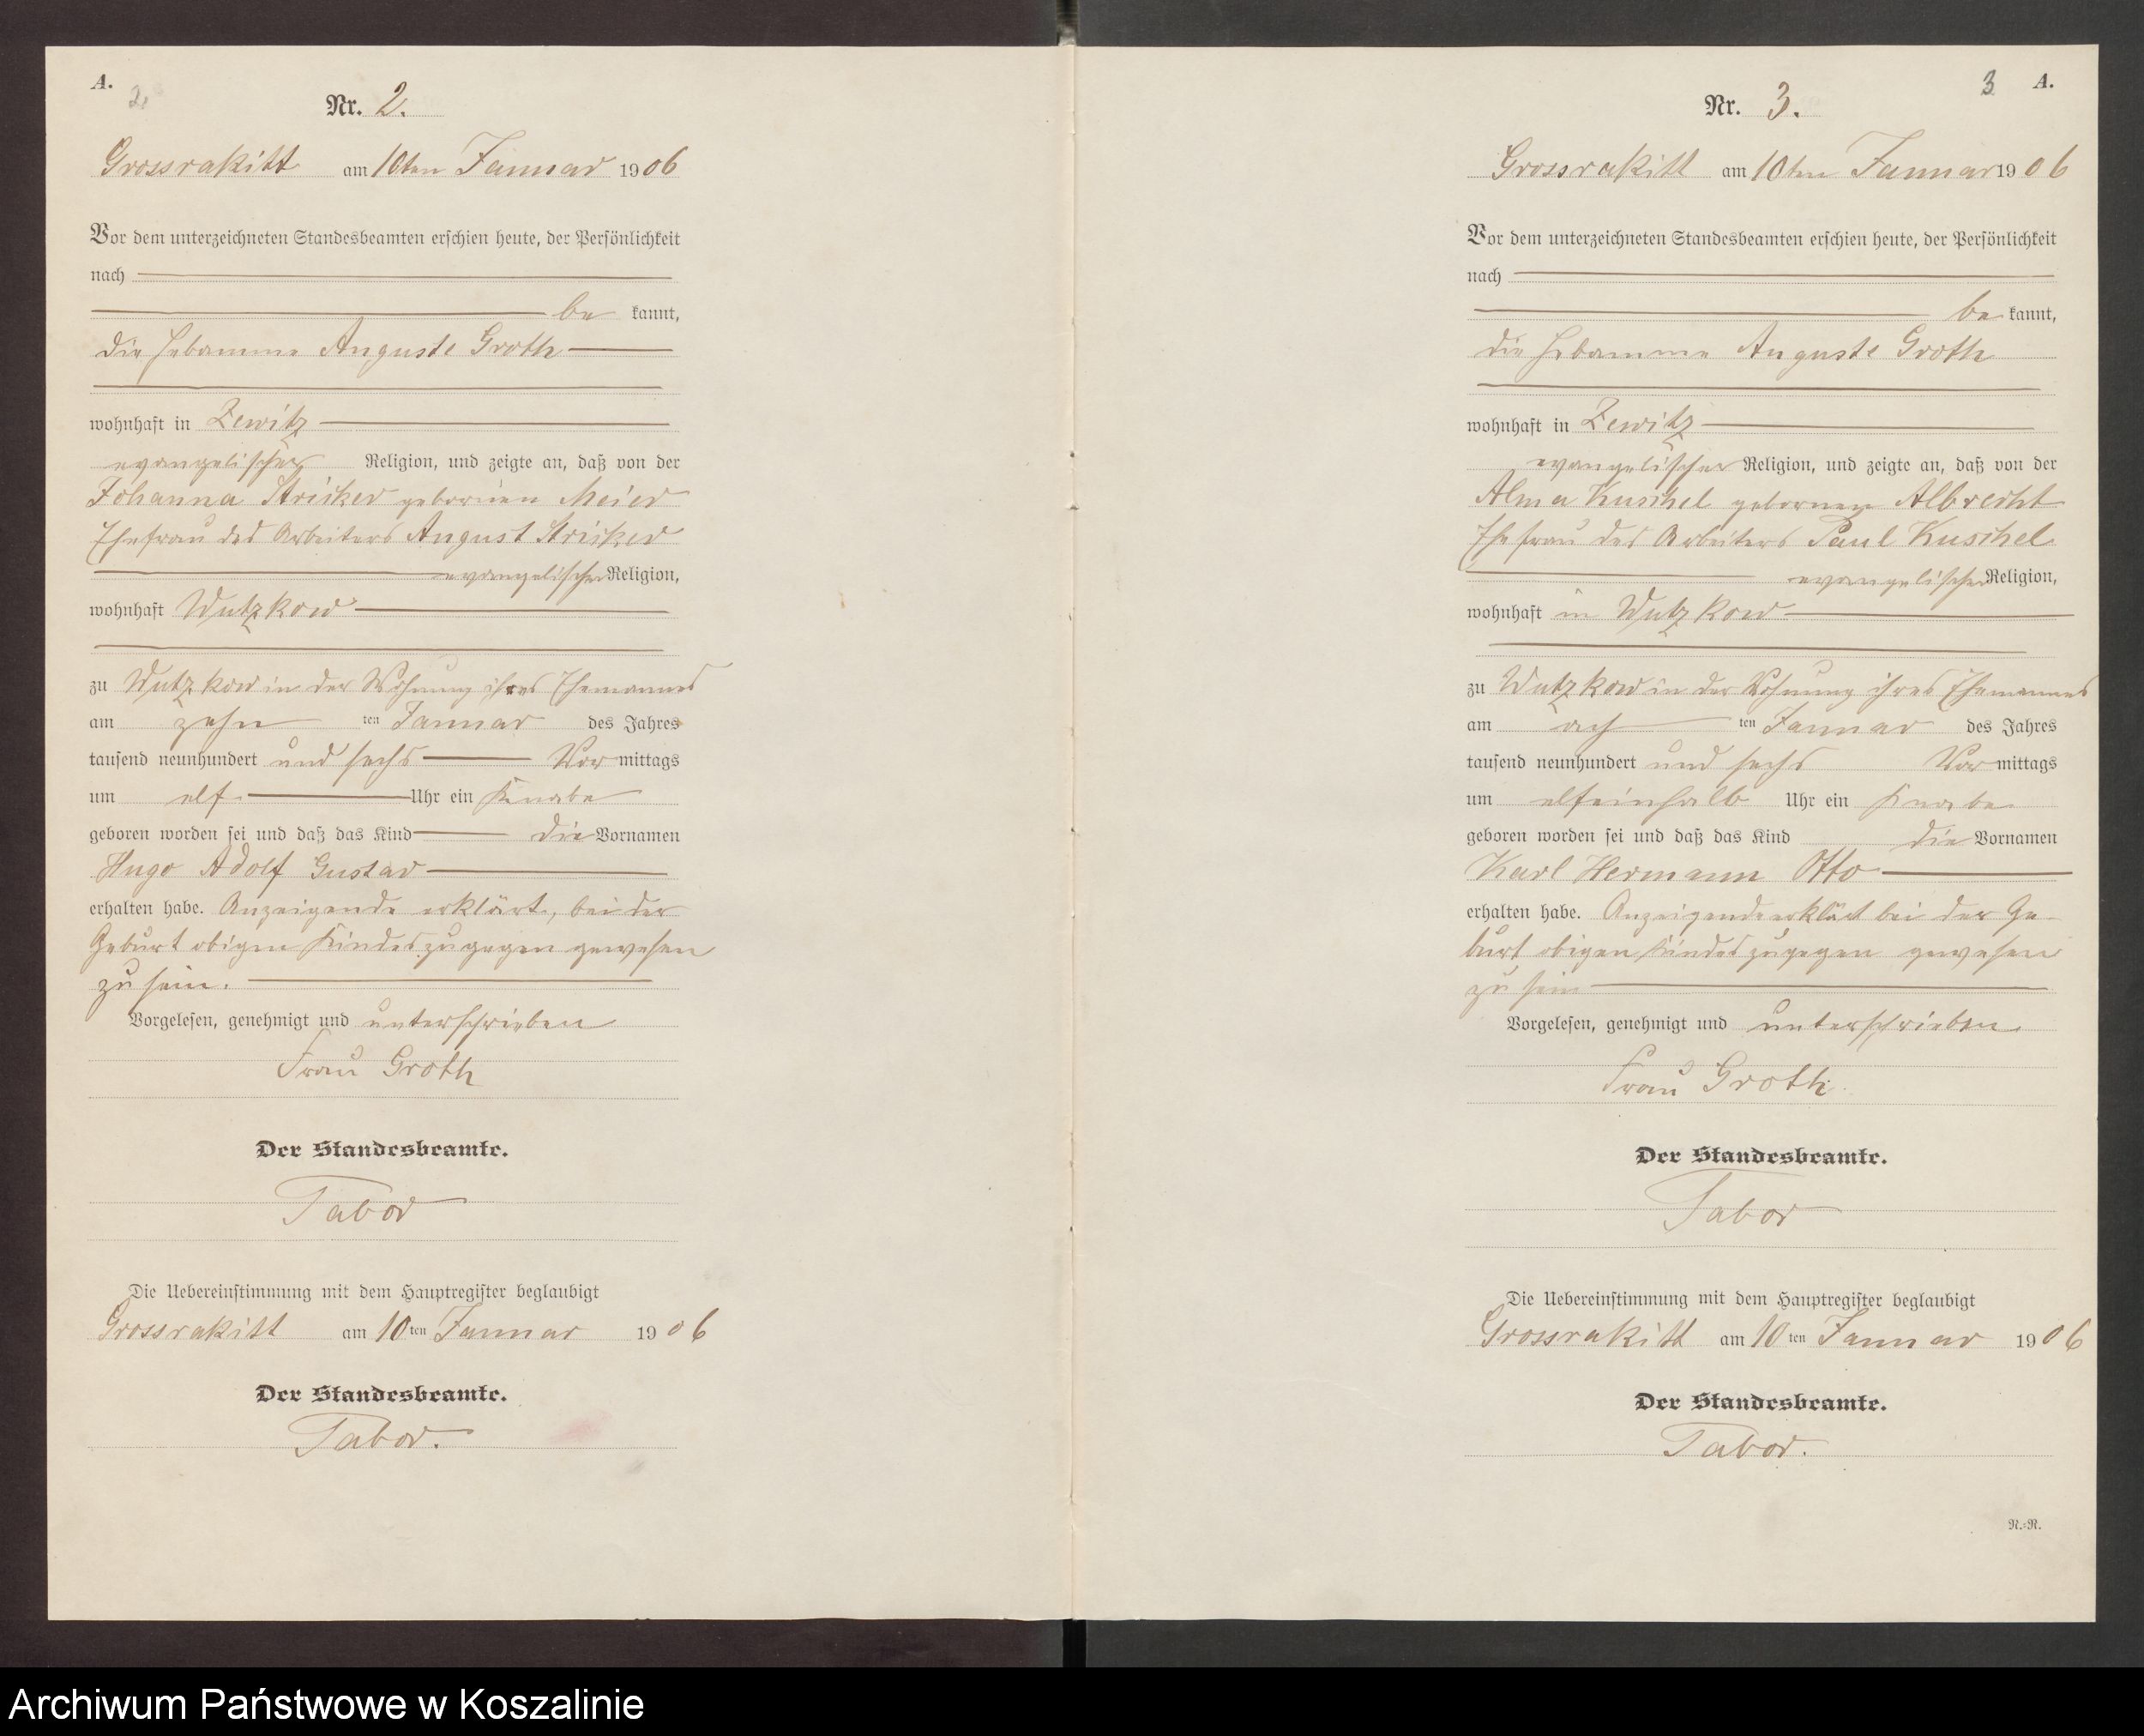 A.
2.
Nr. 2.
Grossrakitt am 10ten Januar 1906
Vor dem unterzeichneten Standesbeamten erschien heute, der Persönlichkeit
nach
be kannt,
die Hebamme Auguste Groth
wohnhaft in Zewitz
evangelischer Religion, und zeigte an, daß von der
Johanna Stricker geborenen Meier
Ehefrau des Arbeiters August Stricker
evangelischer Religion,
wohnhaft Wutzkow
zu Wutzkow in der Wohnung ihres Ehemannes
am zehn ten Januar des Jahres
tausend neunhundert und sechs Vor mittags
um elf Uhr ein Knabe
geboren worden sei und daß das Kind die Vornamen
Hugo Adolf Gustav
erhalten habe. Anzeigende erklärt, bei der
Geburt obigen Kindes zugegen gewesen
zu sein.
Vorgelesen, genehmigt und unterschrieben
Frau Groth
Der Standesbeamte.
Tabor
Die Uebereinstimmung mit dem Hauptregister beglaubigt
Grossrakitt am 10ten Januar 1906
Der Standesbeamte.
Tabor.
3 A.
Nr. 3.
Grossrakitt am 10ten Januar 1906
Vor dem unterzeichneten Standesbeamten erschien heute, der Persönlichkeit
nach
be kannt,
die Hebamme Auguste Groth
wohnhaft in Zewitz
evangelischer Religion, und zeigte an, daß von der
Alma Kuschel gebornen Albrecht
Ehefrau des Arbeiters Paul Kuschel
evangelischer Religion,
wohnhaft in Wutzkow
zu Wutzkow in der Wohnung ihres Ehemannes
am ach ten Januar des Jahres
tausend neunhundert und sechs Vor mittags
um elfeinhalb Uhr ein Knabe
geboren worden sei und daß das Kind die Vornamen
Karl Hermann Otto
erhalten habe. Anzeigende erklärt bei der Ge-
burt obigen Kindes zugegen gewesen
zu sein
Vorgelesen, genehmigt und unterschrieben
Frau Groth.
Der Standesbeamte.
Tabor
Die Uebereinstimmung mit dem Hauptregister beglaubigt
Grossrakitt am 10ten Januar 1906
Der Standesbeamte.
Tabor.
N.=R.
Archiwum Państwowe w Koszalinie